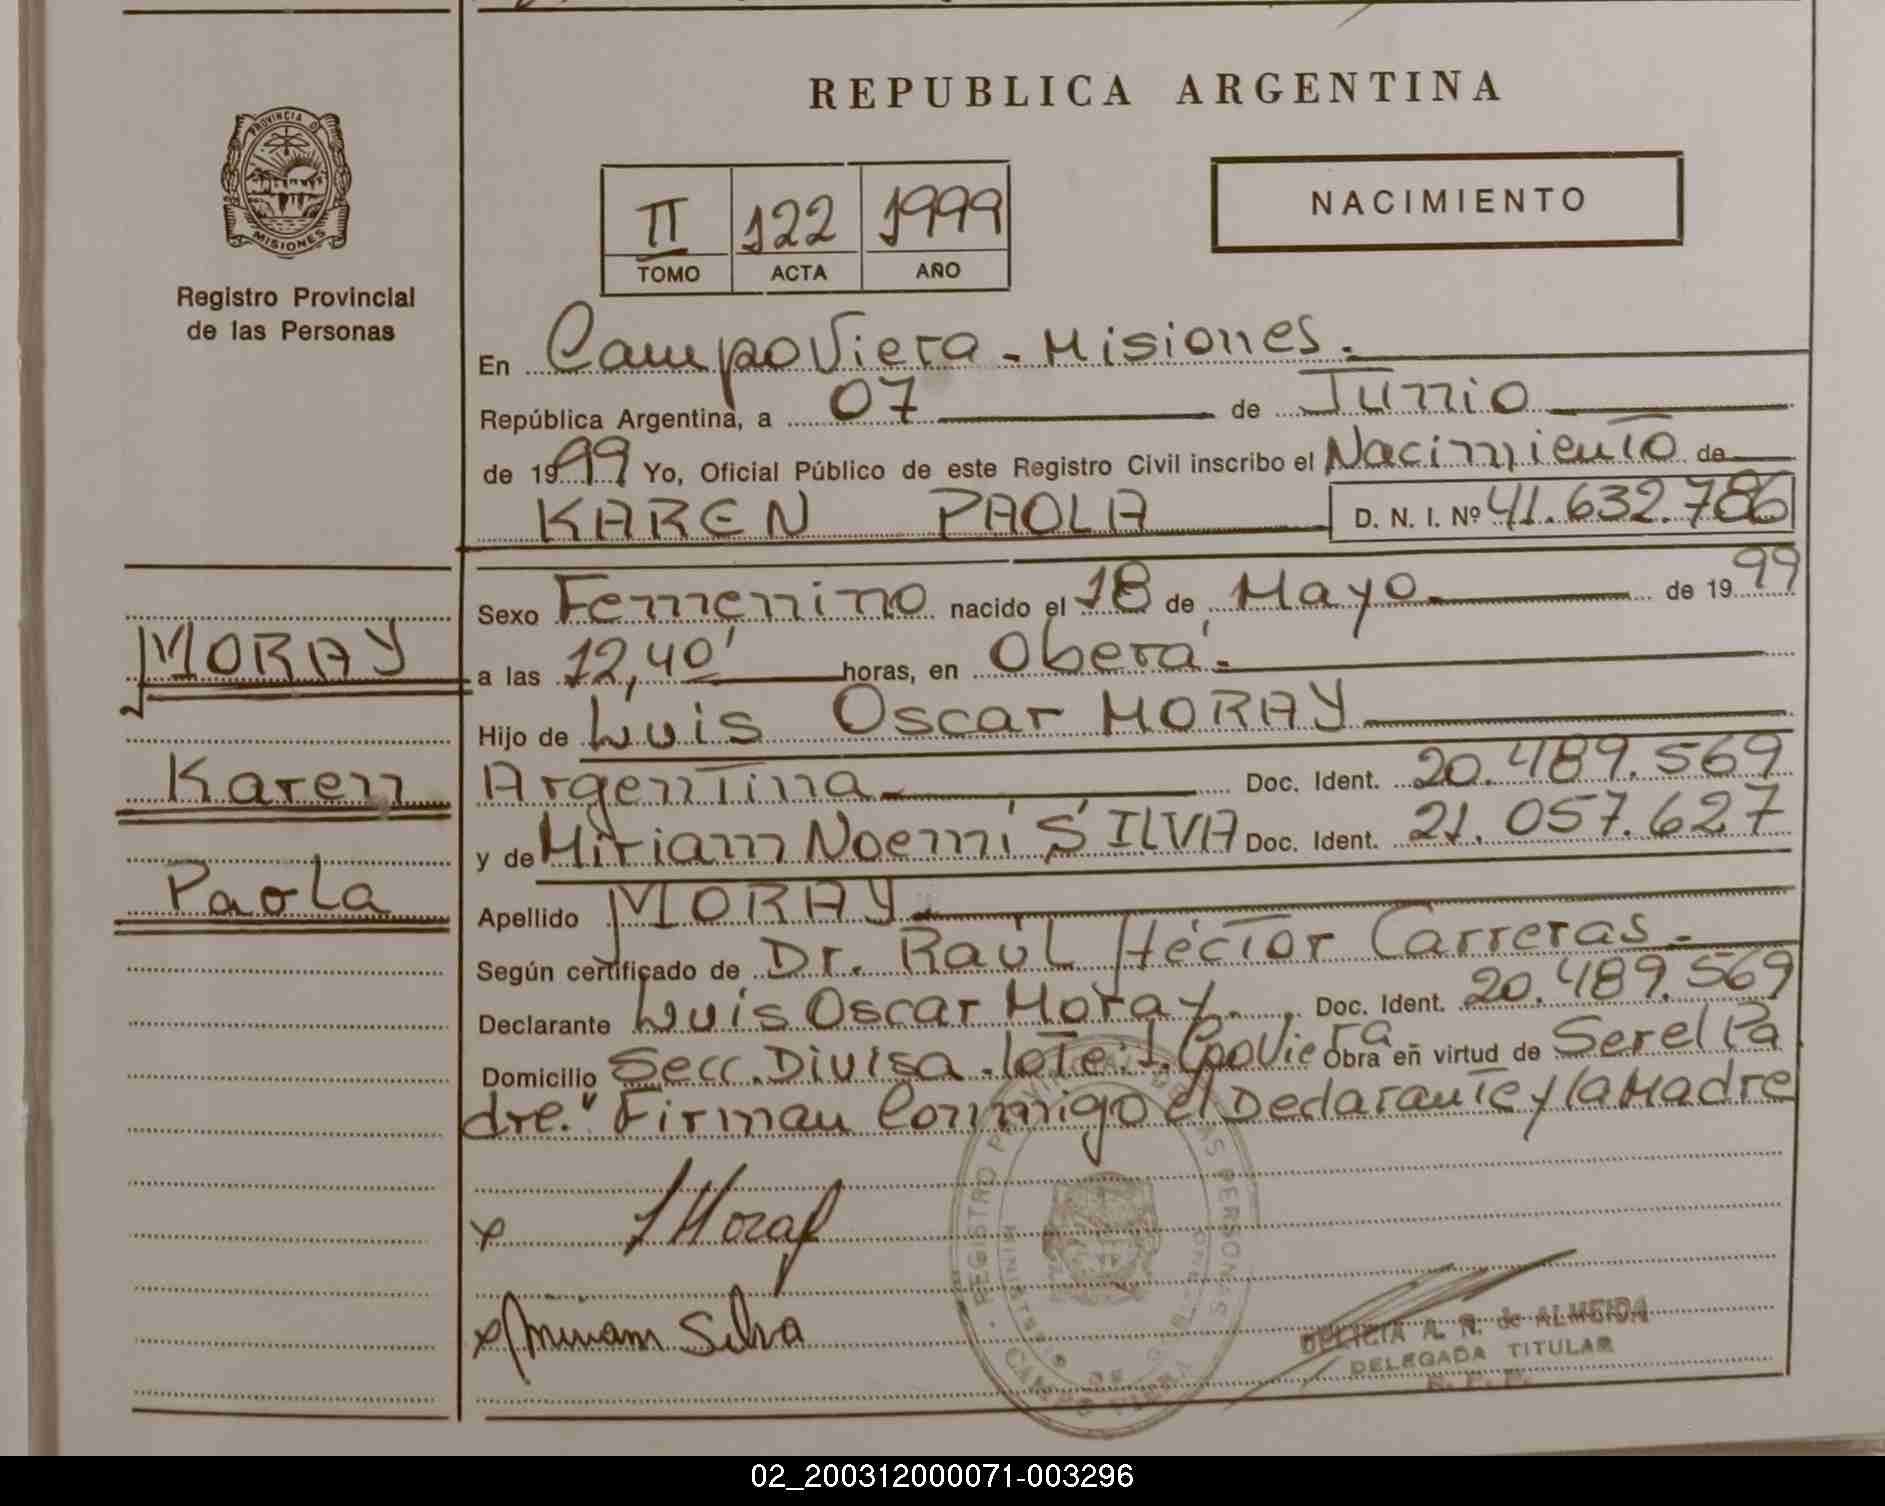 REPUBLICA ARGENTINA
PROVINCIA D
MISIONES
Registro Provincial
de las Personas
II 122 1999
TOMO ACTA AÑO
NACIMIENTO
En Campo Viera - Misiones.
República Argentina, a 07 de Junio
de 1999 Yo, Oficial Público de este Registro Civil inscribo el Nacimiento de
KAREN PAOLA D. N. I. Nº 41.632.786
Sexo Femenino nacido el 18 de Mayo de 1999
MORAY
a las 12,40' horas, en Oberá.
Hijo de Luis Oscar MORAY
Karen
Argentina Doc. Ident. 20.489.569
y de Miriam Noemí SILVA Doc. Ident. 21.057.627
Paola
Apellido MORAY
Según certificado de Dr. Raúl Héctor Carreras.
Declarante Luis Oscar Moray. Doc. Ident. 20.489.569
Domicilio Secc. Divisa. lote: 1. Cpo Viera Obra en virtud de Ser el Pa
dre." Firman Conmigo el Declarante y la Madre
x LMoray
x Miriam Silva
REGISTRO PROVINCIAL DE LAS PERSONAS
CAMPO VIERA
DELICIA A. R. de ALMEIDA
DELEGADA TITULAR
R. P. P.
02_200312000071-003296